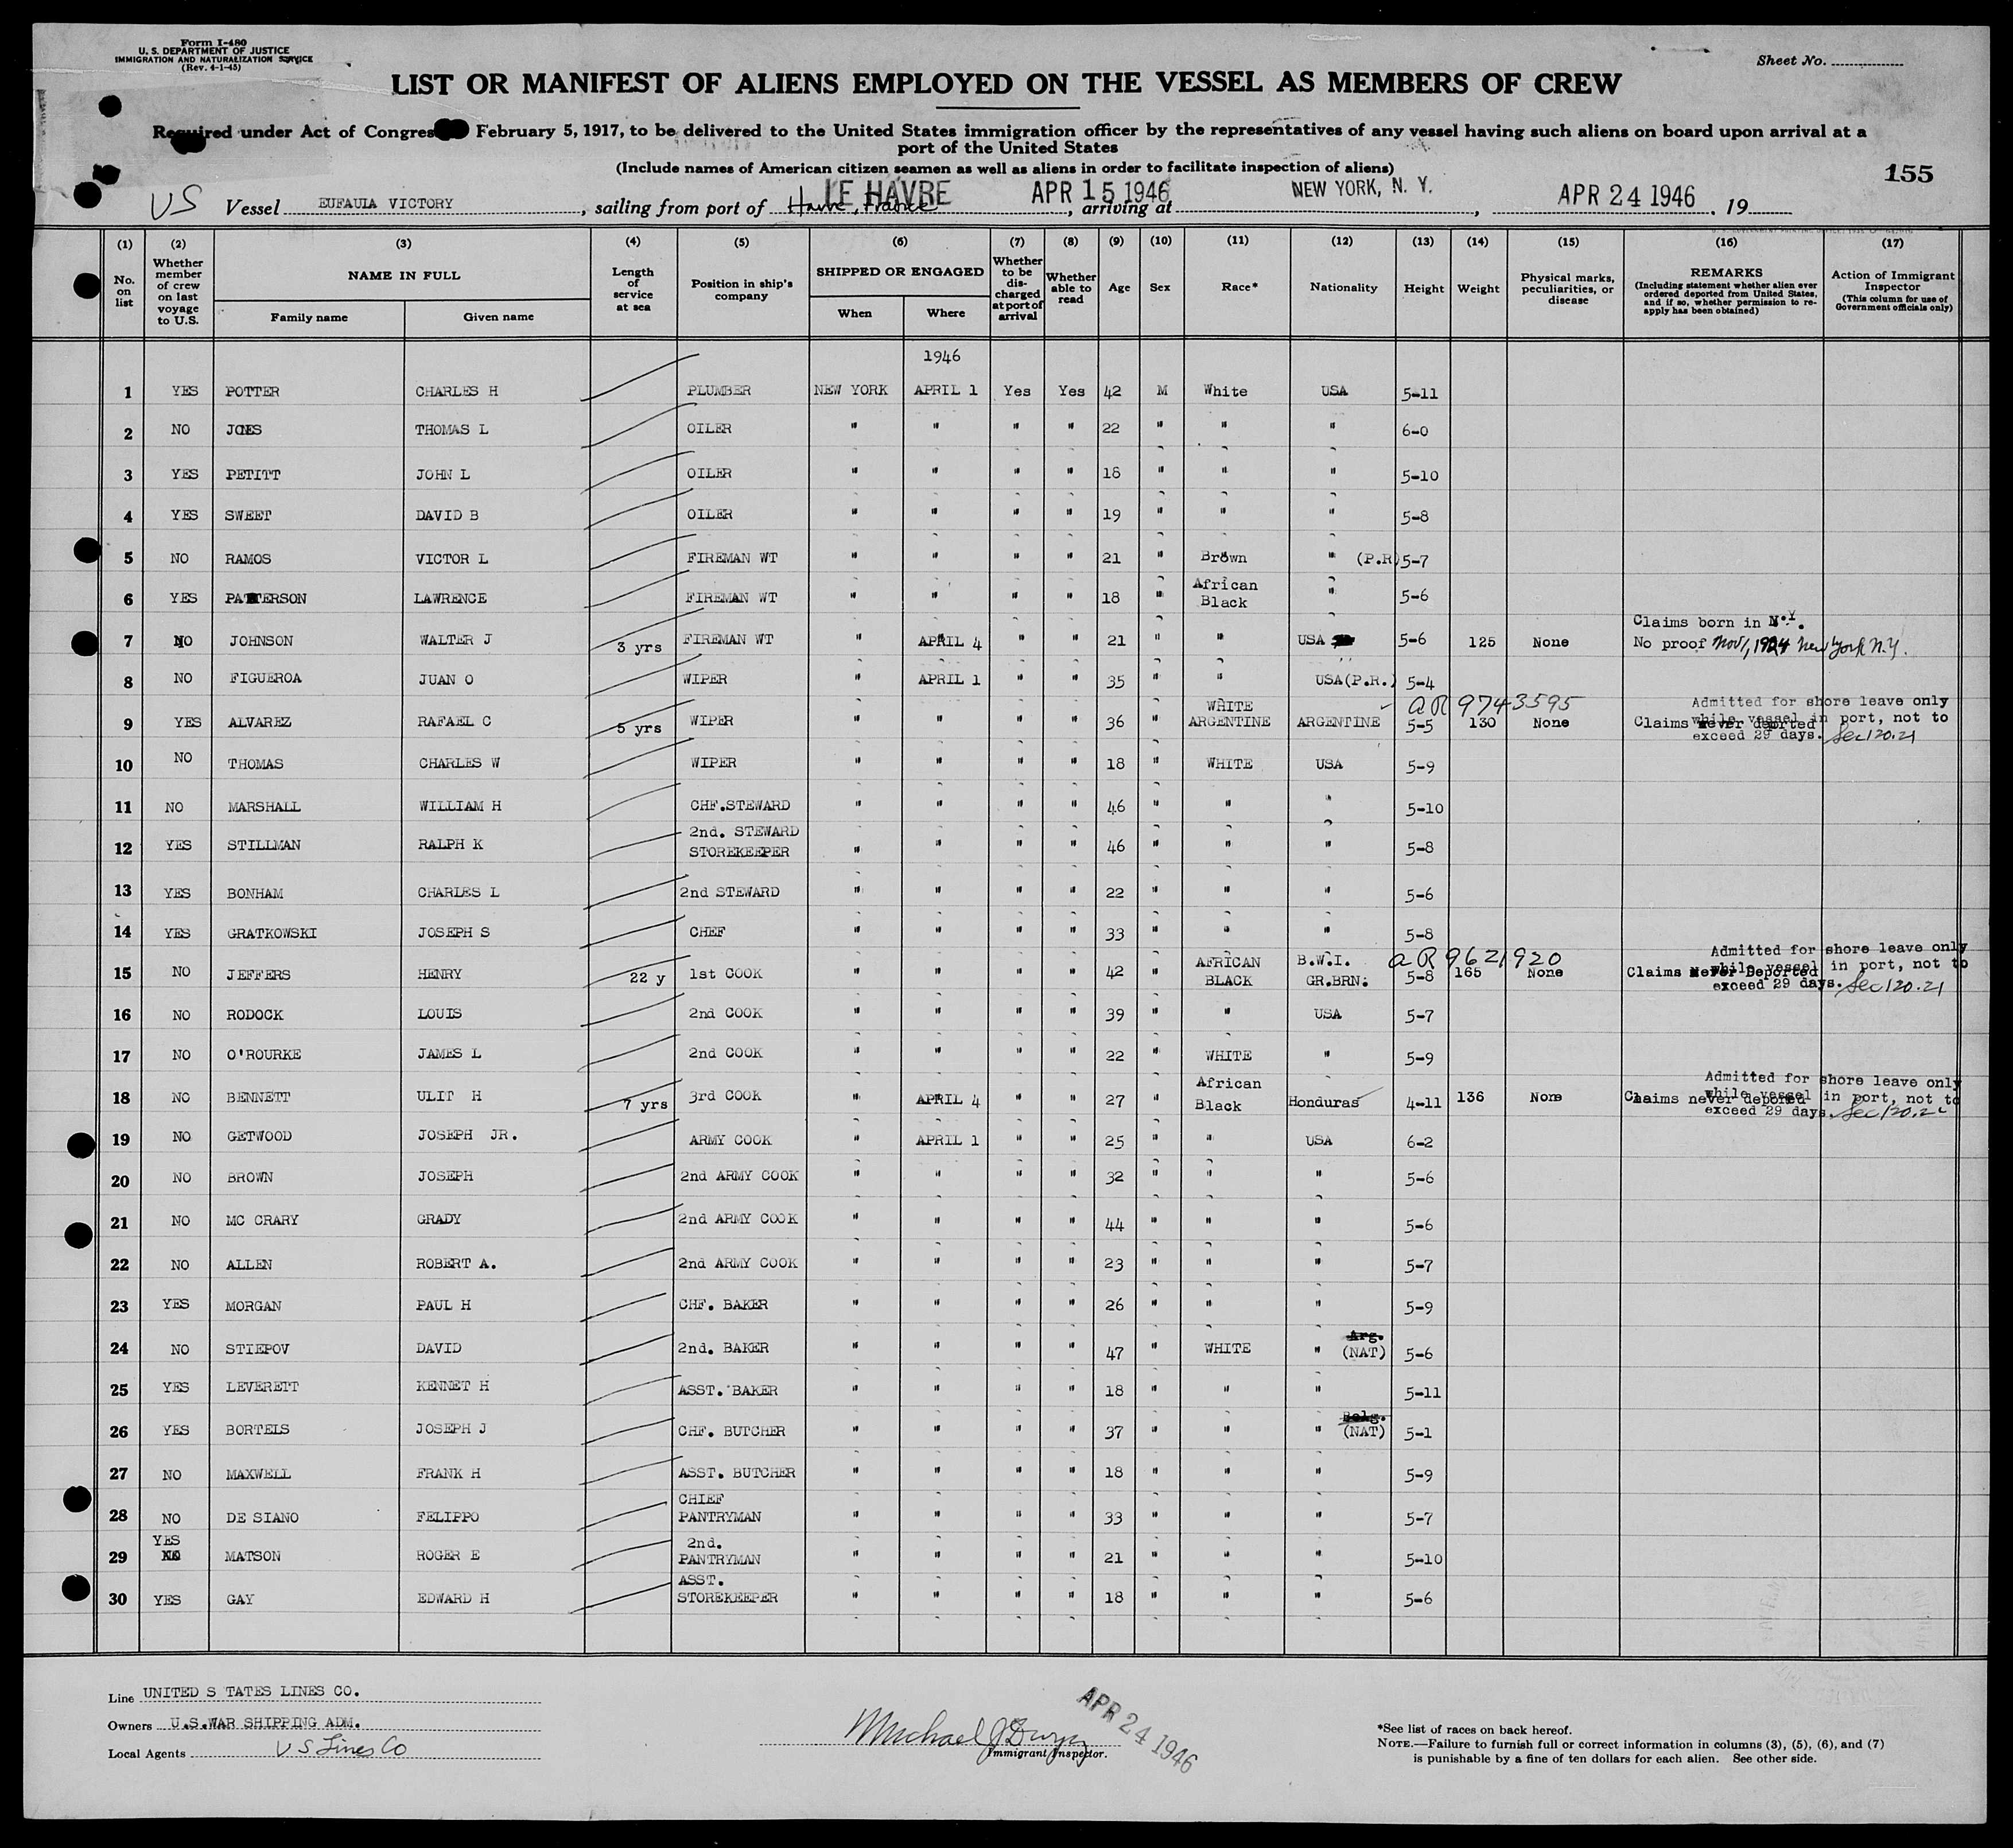 Form I-480
U. S. DEPARTMENT OF JUSTICE
IMMIGRATION AND NATURALIZATION SERVICE
(Rev. 4-1-45)
Sheet No.
LIST OR MANIFEST OF ALIENS EMPLOYED ON THE VESSEL AS MEMBERS OF CREW
Required under Act of Congress February 5, 1917, to be delivered to the United States immigration officer by the representatives of any vessel having such aliens on board upon arrival at a
port of the United States
(Include names of American citizen seamen as well as aliens in order to facilitate inspection of aliens)
155
US Vessel EUFAULA VICTORY, sailing from port of Havre, France LE HAVRE APR 15 1946, arriving at NEW YORK, N. Y., APR 24 1946, 19
(1) (2) (3) (4) (5) (6) (7) (8) (9) (10) (11) (12) (13) (14) (15) (16) (17)
No. on list
Whether member of crew on last voyage to U.S.
NAME IN FULL
Family name Given name
Length of service at sea
Position in ship's company
SHIPPED OR ENGAGED
When Where
Whether to be discharged at port of arrival
Whether able to read
Age Sex Race* Nationality Height Weight
Physical marks, peculiarities, or disease
REMARKS
(Including statement whether alien ever ordered deported from United States, and if so, whether permission to reapply has been obtained)
Action of Immigrant Inspector
(This column for use of Government officials only)
1946
1 YES POTTER CHARLES H PLUMBER NEW YORK APRIL 1 Yes Yes 42 M White USA 5-11
2 NO JONES THOMAS L OILER " " " " 22 " " " 6-0
3 YES PETITT JOHN L OILER " " " " 18 " " " 5-10
4 YES SWEET DAVID B OILER " " " " 19 " " " 5-8
5 NO RAMOS VICTOR L FIREMAN WT " " " " 21 " Brown " (P.R) 5-7
6 YES PATTERSON LAWRENCE FIREMAN WT " " " " 18 " African Black " 5-6
7 NO JOHNSON WALTER J 3 yrs FIREMAN WT " APRIL 4 " " 21 " " USA 5-6 125 None Claims born in N.Y. No proof Nov 1, 1924 New York N.Y.
8 NO FIGUEROA JUAN O WIPER APRIL 1 " " 35 " " USA(P.R.) 5-4
9 YES ALVAREZ RAFAEL C 5 yrs WIPER " " " " 36 " WHITE ARGENTINE ARGENTINE aR 9743595 5-5 130 None Claims never deported Admitted for shore leave only while vessel in port, not to exceed 29 days. Sec 120.21
10 NO THOMAS CHARLES W WIPER " " " " 18 " WHITE USA 5-9
11 NO MARSHALL WILLIAM H CHF.STEWARD " " " " 46 " " " 5-10
12 YES STILLMAN RALPH K 2nd. STEWARD STOREKEEPER " " " " 46 " " " 5-8
13 YES BONHAM CHARLES L 2nd STEWARD " " " " 22 " " " 5-6
14 YES GRATKOWSKI JOSEPH S CHEF " " " " 33 " " " 5-8
15 NO JEFFERS HENRY 22 y 1st COOK " " " " 42 " AFRICAN BLACK B.W.I. GR.BRN: aR 9621920 5-8 165 None Claims Never Deported Admitted for shore leave only while vessel in port, not to exceed 29 days. Sec 120.21
16 NO RODOCK LOUIS 2nd COOK " " " " 39 " " USA 5-7
17 NO O'ROURKE JAMES L 2nd COOK " " " " 22 " WHITE " 5-9
18 NO BENNETT ULIT H 7 yrs 3rd COOK " APRIL 4 " " 27 " African Black Honduras 4-11 136 None Claims never deported Admitted for shore leave only while vessel in port, not to exceed 29 days. Sec 120.21
19 NO GETWOOD JOSEPH JR. ARMY COOK " APRIL 1 " " 25 " " USA 6-2
20 NO BROWN JOSEPH 2nd ARMY COOK " " " " 32 " " " 5-6
21 NO MC CRARY GRADY 2nd ARMY COOK " " " " 44 " " " 5-6
22 NO ALLEN ROBERT A. 2nd ARMY COOK " " " " 23 " " " 5-7
23 YES MORGAN PAUL H CHF. BAKER " " " " 26 " " " 5-9
24 NO STIEPOV DAVID 2nd. BAKER " " " " 47 " WHITE " Arg. (NAT) 5-6
25 YES LEVERETT KENNET H ASST. BAKER " " " " 18 " " " 5-11
26 YES BORTELS JOSEPH J CHF. BUTCHER " " " " 37 " " " Belg. (NAT) 5-1
27 NO MAXWELL FRANK H ASST. BUTCHER " " " " 18 " " " 5-9
28 NO DE SIANO FELIPPO CHIEF PANTRYMAN " " " " 33 " " " 5-7
29 YES NO MATSON ROGER E 2nd. PANTRYMAN " " " " 21 " " " 5-10
30 YES GAY EDWARD H ASST. STOREKEEPER " " " " 18 " " " 5-6
Line UNITED S TATES LINES CO.
Owners U.S.WAR SHIPPING ADM.
Local Agents U S Lines Co
Michael J
Immigrant Inspector.
APR 24 1946
*See list of races on back hereof.
NOTE.—Failure to furnish full or correct information in columns (3), (5), (6), and (7)
is punishable by a fine of ten dollars for each alien. See other side.